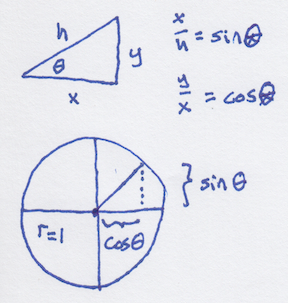 h
θ
y
x
x/h = sinθ
y/x = cosθ
} sinθ
r=1
cosθ